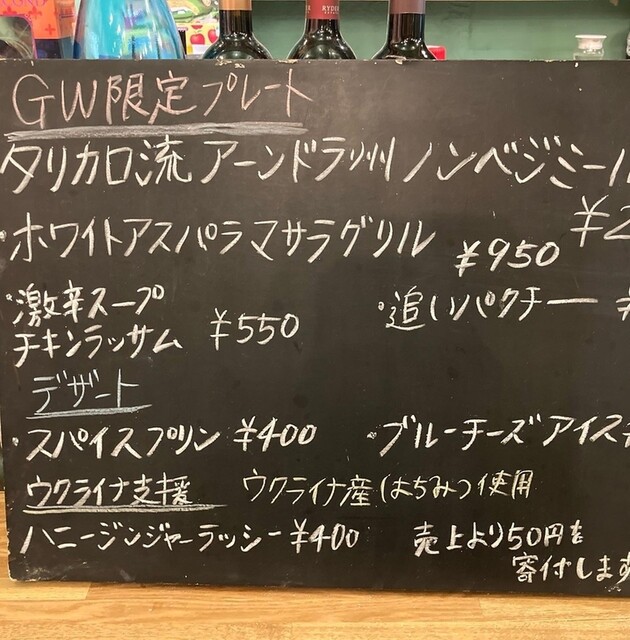 RYDER
GW限定プレート
タリカロ流 アーンドラ州 ノンベジミール
¥2
・ホワイトアスパラマサラグリル ¥950
・激辛スープ
チキンラッサム ¥550 ・追いパクチー
デザート
・スパイスプリン ¥400 ・ブルーチーズアイス
ウクライナ支援 ウクライナ産はちみつ使用
ハニージンジャーラッシー ¥400 売上より50円を
寄付します